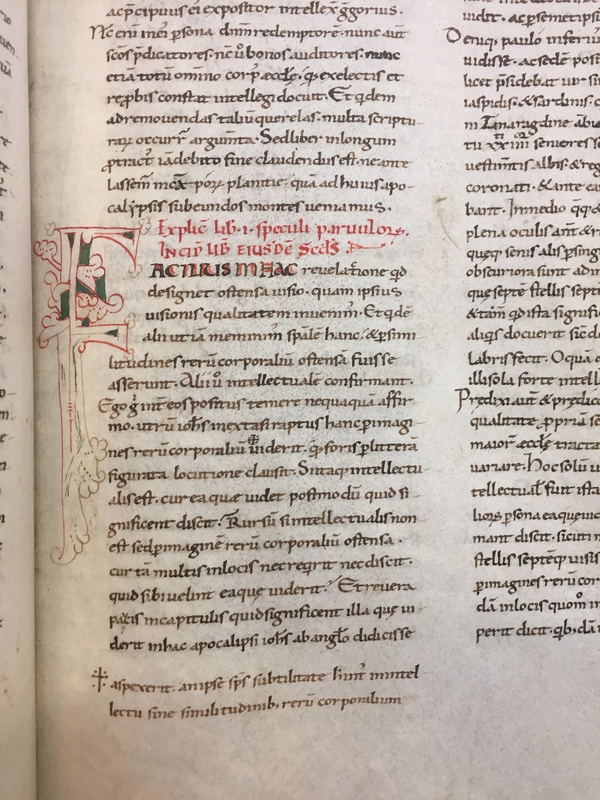 acp̄cipuus ei expositor intellex̄ g̃gorius.
Nc̄ eni mei p̱sona dnm redemptorē. nunc aut
scōs p̄dicatores. nc̄ ůbonos auditores. nunc
etiā totū omino corp̱ æcclę. q, exelectis et
rep̱bis constat intellegi docuit. Et qdem
ad remouendas taliū querelas. multa scriptu
rarꝝ occurr̄ argum̄ta. Sed liber in longum
p̱tract' iā debito fine claudendus est. ne ante
ad huius apo
calypsis subeundos montes ueniamus.
Explic̄ lib̄. i. speculi paruuloꝝ.
Incip̄ lib̄ eiusdē scdś
FACTITIUS IN HAC reuelatione qd
designet ostensa uisio. quam ipsius
uisionis qualitatem inuenim̄. Et qdē
alii utiā memimm̄ sp̄alē hanc. & p̱simi
litudines rerū corporaliū ostensā fuisse
asserunt. Alii ů intellectualē confirmant.
Ego g̊ int̄ eos positus temere nequaquā affir
mo. utrū iohs in extasi raptus hanc p̱ imagi
nes rerū corporaliū uiderit. q̄ foris p̱ litterā
figurata locutione clausit. Si itaq intellectu
alis est. cur ea quæ uidet post modū quid si
gnificent discit. Rursū si intellectualis non
est sed p̱ imaginē rerū corporaliū ostensa.
cur tā multis in locis nec req̄rit nec discit.
quid sibi uelint ea quę uiderit. Et reuera
paucis in capitulis quid significent illa quę ui
derit in hac apocalipsi iohs ab anglo didicisse
aspexerit. an ipse sp̄s subtilitate
lectu sine similitudinib, rerū corporalium
uidit. ac p̱semetipsū
Deniq, paulo inferiu
uidisse. ac sedē posi
licet p̄sidebat uir si
iaspidis. & sardinis. c
tu xxiiii seniores se
uestim̄tis albis. & reg
coronati. & ante ea
bant. In medio q̄q, &
plena oculis ant̄ & r
queq, senis alis p̱sing
obscuriora sunt adm
que septē stellis septi
& tam̄ qd ista signifi
aliqs docuerit sic d
labris fecit. O quā
illi sola forte intell
Predixi aut & predico
qualitate p̱priā se
maior̄ æcclę tracta
uariare. Hoc solū u
tellectual̄ fuit ista
liorꝝ p̱sona ea que ui
mant discit. sicuti n
stellis septēq, uisis
p̱imagines rerū cor
dā in locis quom̊ in
perit dicit. qb, dā i